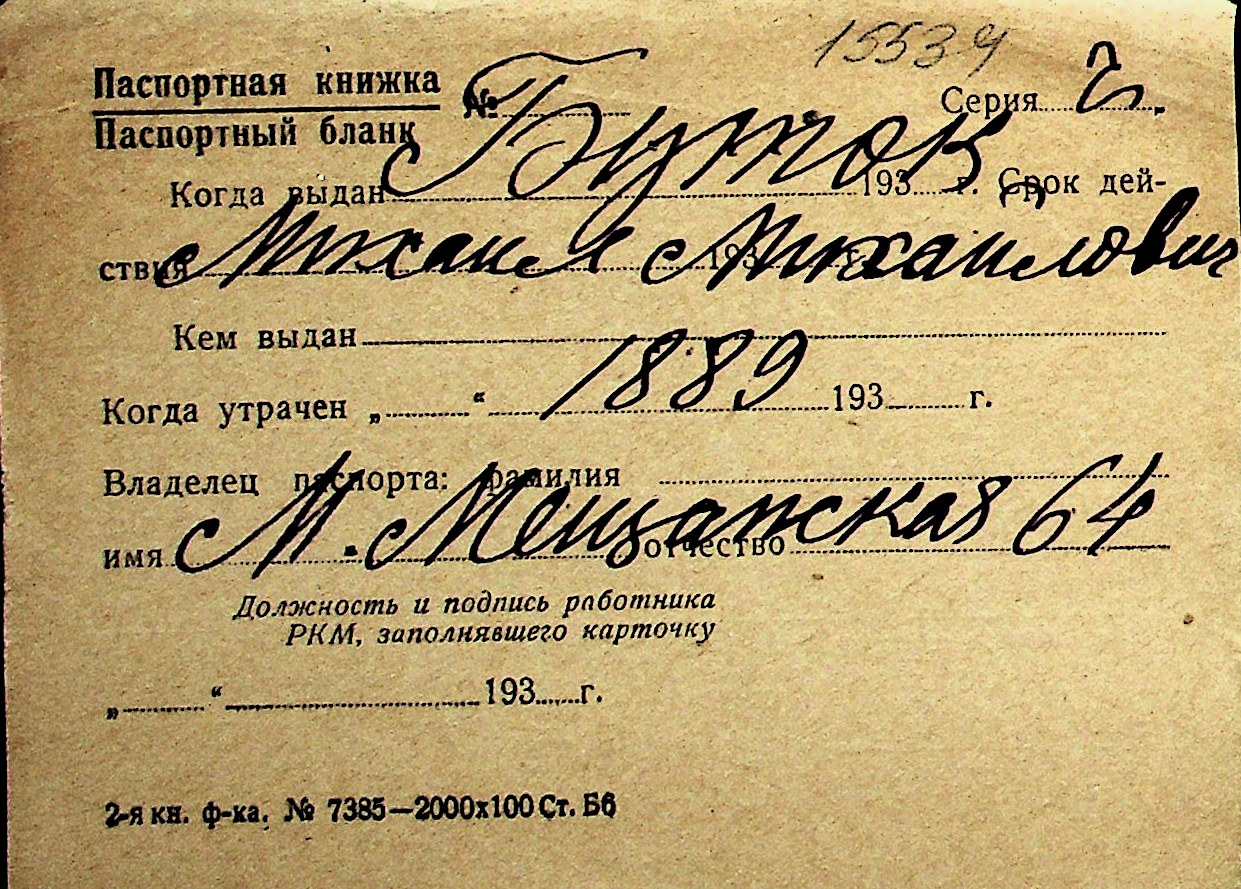 15534
Паспортная книжка № Серия
Паспортный бланк
Бутов
Когда выдан 193 г. Срок дей-
ствия 193
Михаил Михаилович
Кем выдан
1889
Когда утрачен „ “ 193 г.
Владелец паспорта: фамилия
М. Мещанская 64
имя отчество
Должность и подпись работника
РКМ, заполнявшего карточку
„ “ 193 г.
2-я кн. ф-ка. № 7385—2000х100 Ст. Б6